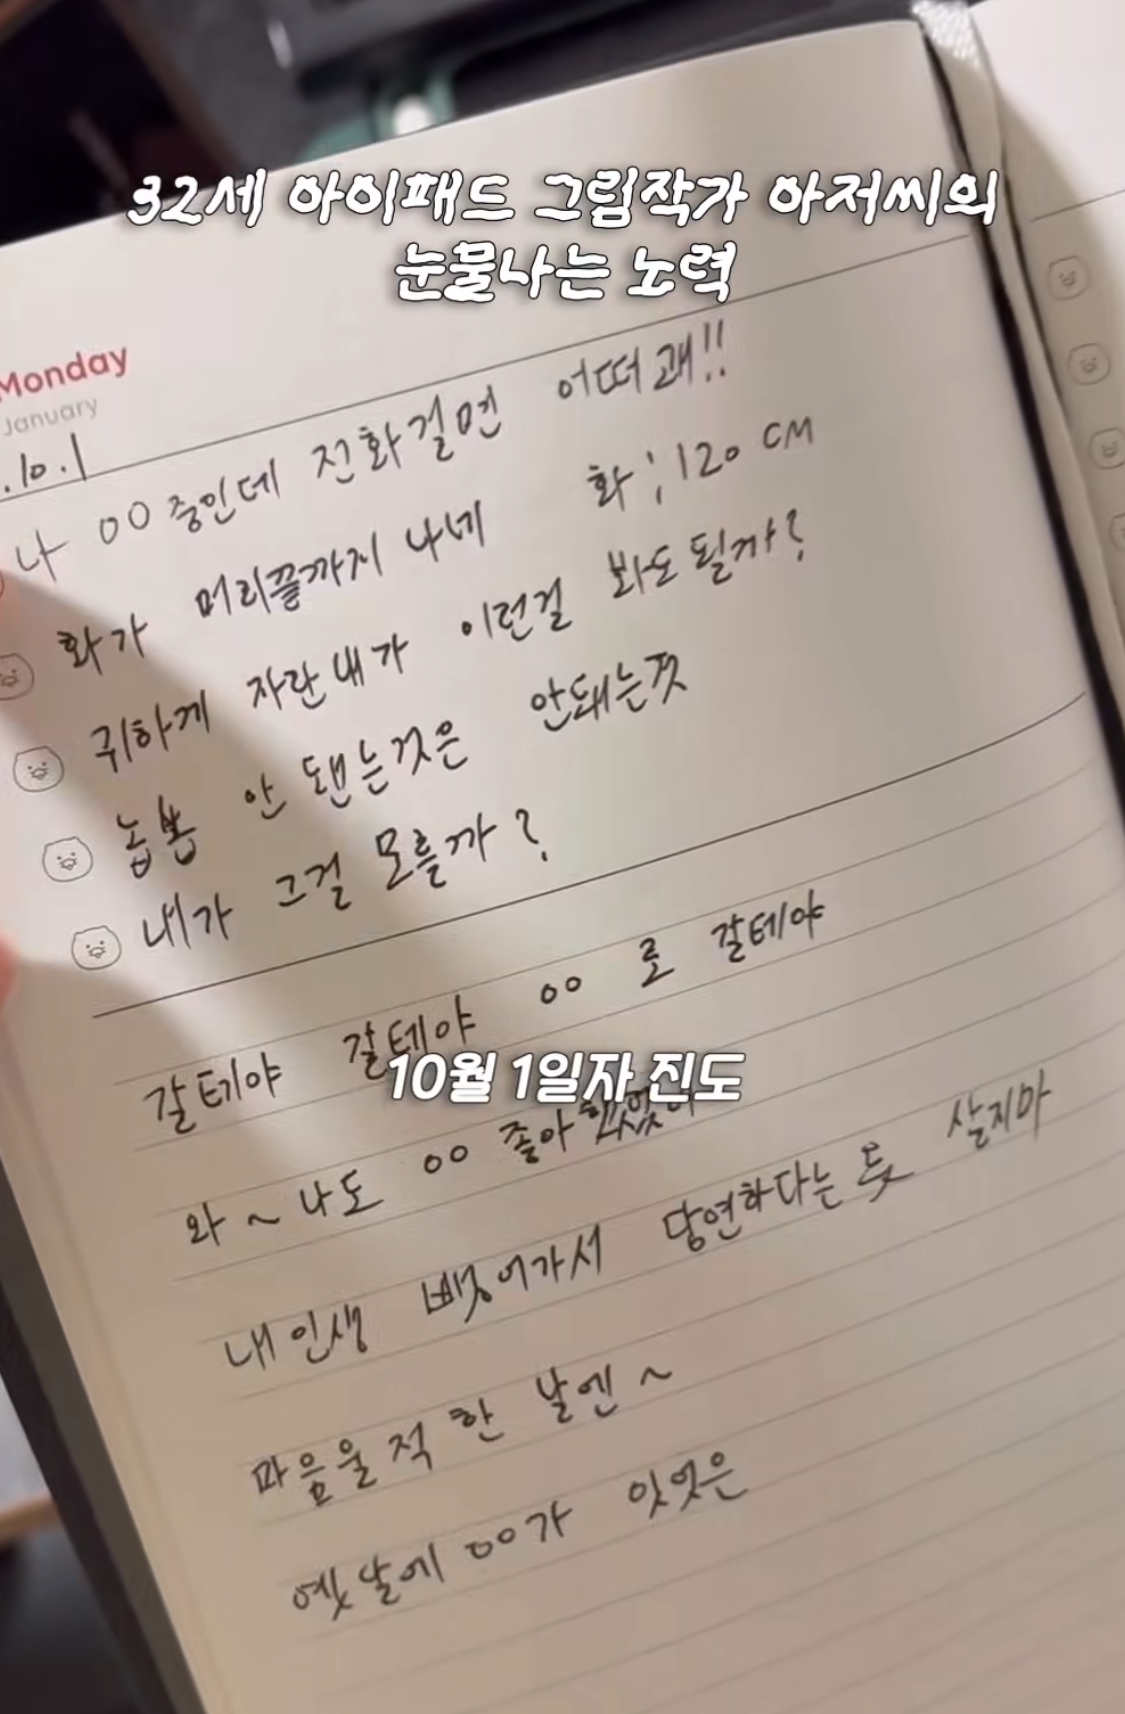 32세 아이패드 그림작가 아저씨의
눈물나는 노력
Monday
January
.10.1
나 00중인데 전화걸면 어떠괘!!
화가 머리끝까지 나네 화;120CM
귀하게 자란내가 이런걸 봐도될까?
놉뽄 안 됀는것은 안돼는것
내가 그걸 모를까?
갈테야 갈테야 00 로 갈테야
10월 1일자 진도
와~나도 00 좋아
내인생 뺏어가서 당연하다는듯 살지마
마음울적 한 날엔~
옛날에 00가 잇엇은